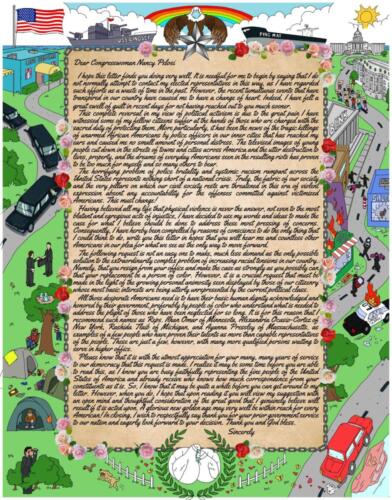 PING MAI
Dear Congresswoman Nancy Pelosi
I hope this letter finds you doing very well. It is needful for me to begin by saying that I do
not normally attempt to contact my elected representatives in this way, as I have regarded
such efforts as a waste of time in the past. However, the recent tumultuous events that have
transpired in our country have caused me to have a change of heart. Indeed, I have felt a
great swell of guilt in recent days for not having reached out to you much sooner.
This complete reversal in my view of political activism is due to the great pain I have
witnessed some of my fellow citizens suffer at the hands of those who are charged with the
sacred duty of protecting them. More particularly, it has been the news of the tragic killings
of unarmed African Americans by police officers in our inner cities that has reached my
ears and caused me no small amount of personal distress. The televised images of young
people cut down in the streets of towns and cities across America and the utter destruction to
lives, property, and the dreams of everyday Americans seen in the resulting riots has proven
to be too much for myself and so many others to bear.
The horrifying problem of police brutality and systemic racism rampant across the
United States represents nothing short of a national crisis. Truly, the fabric of our society
and the very pillars on which our civil society rests are threatened in this era of violent
oppression absent any accountability for the offenses committed against victimized
Americans. This must change.
Having believed all my life that physical violence is never the answer, not even to the most
blatant and egregious acts of injustice, I have decided to use my words and ideas to make the
case for what I believe should be done to address these most pressing of concerns.
Consequently, I have hereby been compelled by reasons of conscience to do the only thing that
I could think to do, write you this letter in hopes that you will hear me and countless other
Americans in our plea for what we see as the only way to move forward.
The following request is not an easy one to make, much less demand as the only possible
solution to the extraordinarily complex problem of increasing racial tensions in our country.
Namely, that you resign from your office and make the case as strongly as you possibly can
that your replacement be a person of color. However, it is a crucial request that must be
made in the light of the growing personal animosity seen displayed by those of our citizenry
whose most basic interests are being utterly unrepresented by the current political class.
All those desperate Americans need is to have their basic human dignity acknowledged and
honored by their government, preferably by people of color who understand what is needed to
address the plight of those who have been neglected for so long. It is for this reason that I
recommend such names as Reps. Ilhan Omar of Minnesota, Alexandria Ocasio-Cortez of
New York, Rashida Tlaib of Michigan, and Ayanna Pressley of Massachusetts, as
examples of a few people who have proven their talents as more than capable representatives
of the people. These are just a few, however, with many more qualified persons waiting to
serve in higher office.
Please know that it is with the utmost appreciation for your many, many years of service
to our democracy that this request is made. I realize it may be some time before you are able
to read this, as I know you are busy faithfully representing the fine people of the United
States of America and already receive who knows how much correspondence from your
constituents as it is. So, I know that it may be quite a while before you can get around to my
letter. However, when you do, I hope that upon reading it you will view my suggestion with
an open mind and thoughtful consideration of the great good that I genuinely believe will
result if it is acted upon. A glorious new golden age may very well be within reach for every
American! In closing, I wish to respectfully say thank you for your prior government service
to our nation and eagerly look forward to your decision. Thank you and God bless.
Sincerely